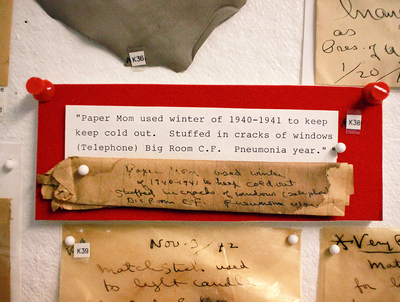 Inau
as
Pres. of a
1/20/
K36
"Paper Mom used winter of 1940-1941 to keep
keep cold out. Stuffed in cracks of windows
(Telephone) Big Room C.F. Pneumonia year."
K38
Paper Mom used winter
of 1940-1941 to keep cold out
Stuffed in cracks of windows (telephone)
Big Room C.F. Pneumonia year
K39
Nov. 3/
Matchstick used
to light candle
*Very
Match
for